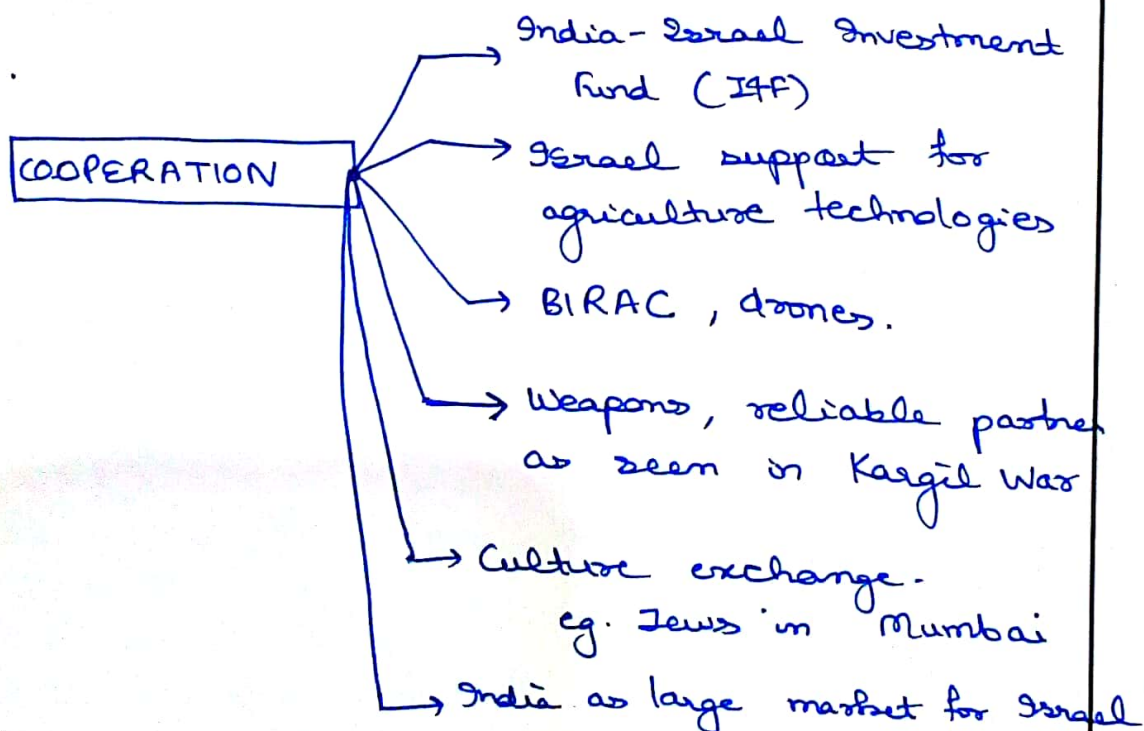 India-Israel Investment
Fund (I4F)
COOPERATION
Israel support for
agriculture technologies
BIRAC, drones.
Weapons, reliable partner
as seen in Kargil War
Culture exchange.
eg. Jews in Mumbai
India as large market for Israel